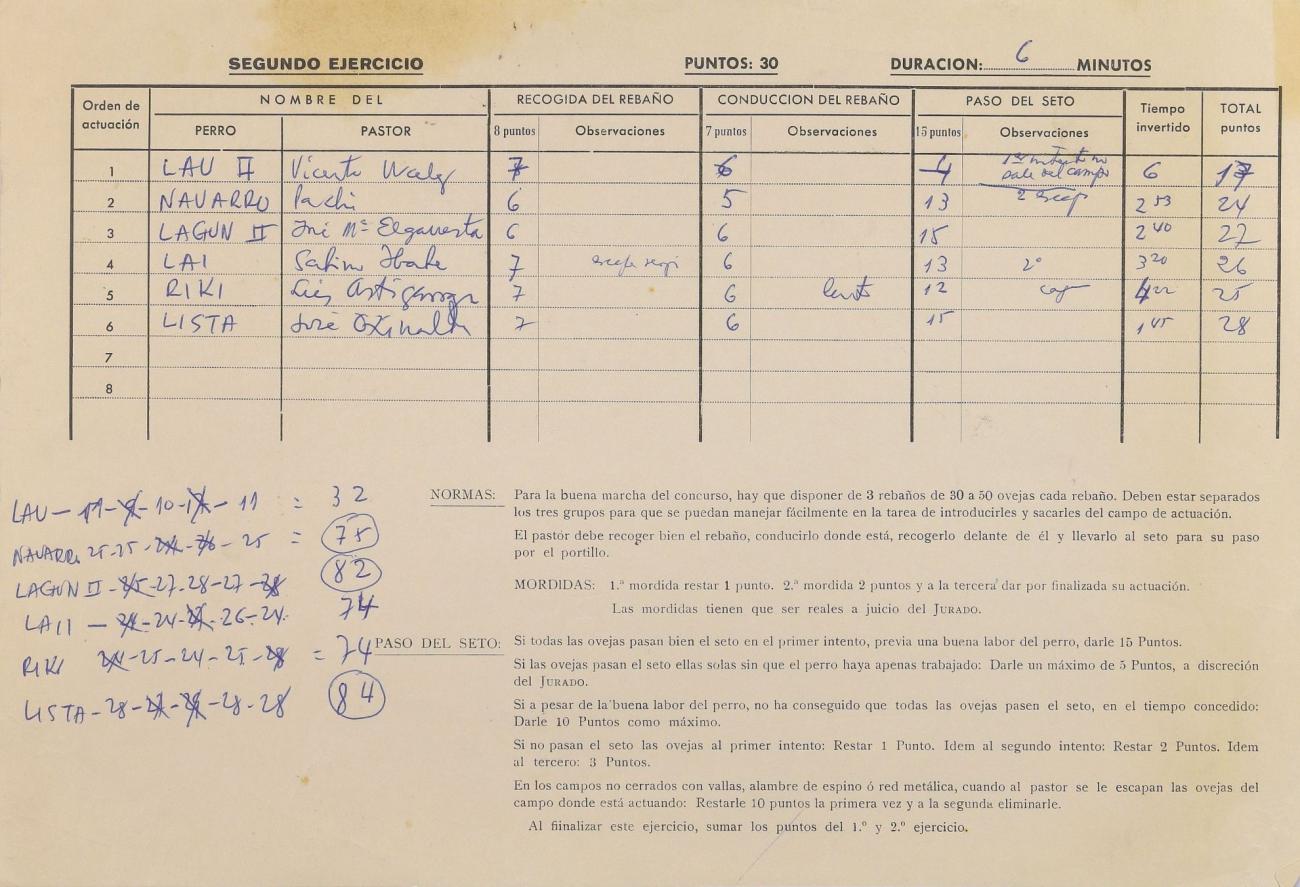 SEGUNDO EJERCICIO PUNTOS: 30 DURACION: 6 MINUTOS
Orden de actuación NOMBRE DEL RECOGIDA DEL REBAÑO CONDUCCION DEL REBAÑO PASO DEL SETO Tiempo invertido TOTAL puntos
PERRO PASTOR 8 puntos Observaciones 7 puntos Observaciones 15 puntos Observaciones
1 LAU II Vicente 7 6 4 1er intento no sale del campo 6 17
2 NAVARRO Pachi 6 5 13 2 escap 2 53 24
3 LAGUN II José Mª 6 6 15 2 40 27
4 LAI 7 6 13 2º 3 20 26
5 RIKI Luis 7 6 lento 12 4 22 25
6 LISTA José 7 6 15 1 45 28
7
8
LAU - 11 - 10 - 11 = 32
NAVARRO 25-25 - 25 = 75
LAGUN II - 27-28-27 82
LA II - 24 - 26-24 74
RIKI 25-24-25 = 74
LISTA - 28 - 28-28 84
NORMAS: Para la buena marcha del concurso, hay que disponer de 3 rebaños de 30 a 50 ovejas cada rebaño. Deben estar separados
los tres grupos para que se puedan manejar fácilmente en la tarea de introducirles y sacarles del campo de actuación.
El pastor debe recoger bien el rebaño, conducirlo donde está, recogerlo delante de él y llevarlo al seto para su paso
por el portillo.
MORDIDAS: 1.ª mordida restar 1 punto. 2.ª mordida 2 puntos y a la tercera dar por finalizada su actuación.
Las mordidas tienen que ser reales a juicio del JURADO.
PASO DEL SETO: Si todas las ovejas pasan bien el seto en el primer intento, previa una buena labor del perro, darle 15 Puntos.
Si las ovejas pasan el seto ellas solas sin que el perro haya apenas trabajado: Darle un máximo de 5 Puntos, a discreción
del JURADO.
Si a pesar de la buena labor del perro, no ha conseguido que todas las ovejas pasen el seto, en el tiempo concedido:
Darle 10 Puntos como máximo.
Si no pasan el seto las ovejas al primer intento: Restar 1 Punto. Idem al segundo intento: Restar 2 Puntos. Idem
al tercero: 3 Puntos.
En los campos no cerrados con vallas, alambre de espino ó red metálica, cuando al pastor se le escapan las ovejas del
campo donde está actuando: Restarle 10 puntos la primera vez y a la segunda eliminarle.
Al fiinalizar este ejercicio, sumar los puntos del 1.º y 2.º ejercicio.